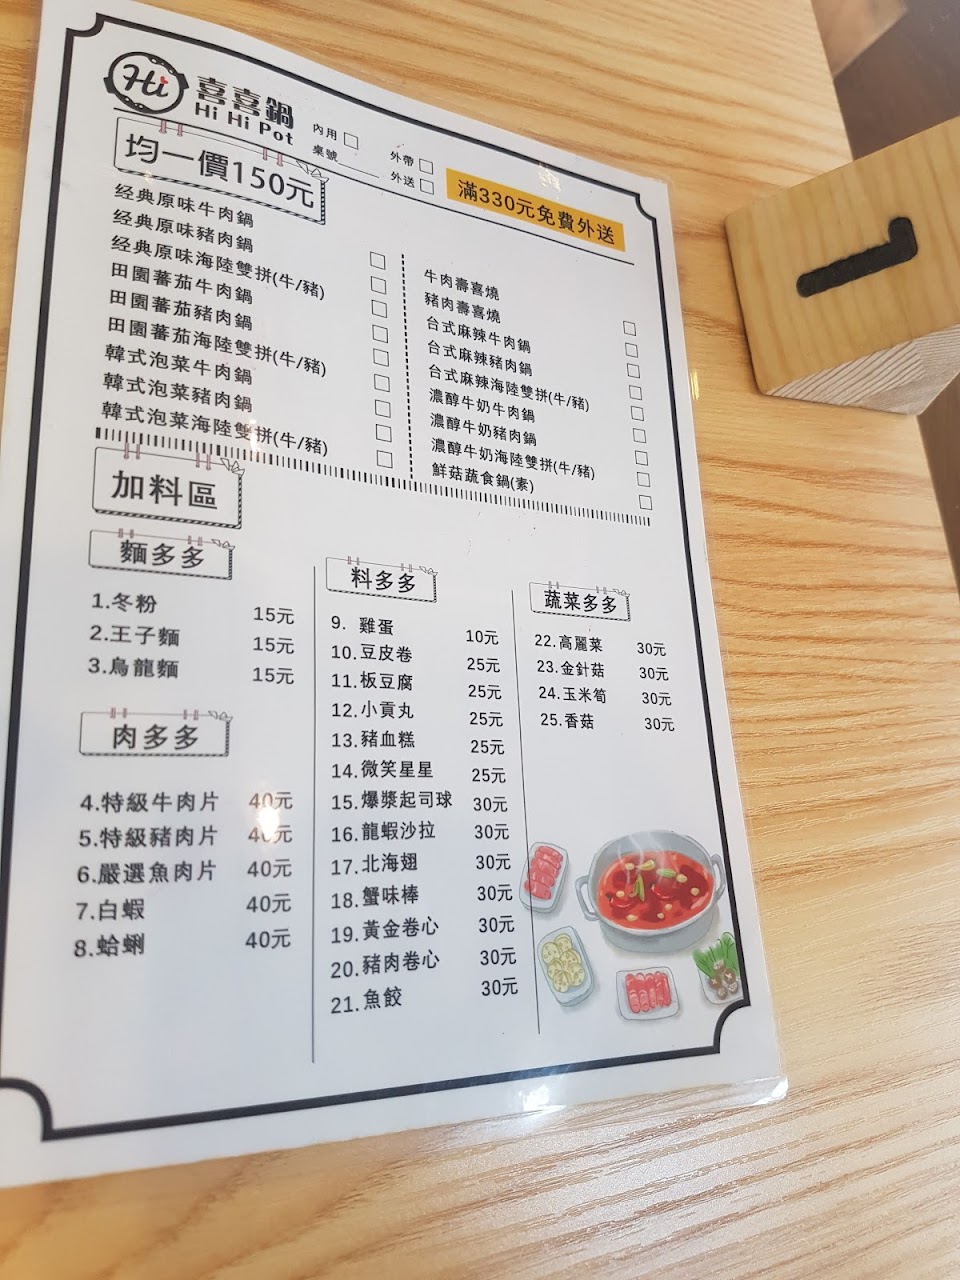 Hi
喜喜鍋
Hi Hi Pot
內用
桌號
外帶
外送
滿330元免費外送
均一價150元
经典原味牛肉鍋
经典原味豬肉鍋
经典原味海陸雙拼(牛/豬)
田園蕃茄牛肉鍋
田園蕃茄豬肉鍋
田園蕃茄海陸雙拼(牛/豬)
韓式泡菜牛肉鍋
韓式泡菜豬肉鍋
韓式泡菜海陸雙拼(牛/豬)
牛肉壽喜燒
豬肉壽喜燒
台式麻辣牛肉鍋
台式麻辣豬肉鍋
台式麻辣海陸雙拼(牛/豬)
濃醇牛奶牛肉鍋
濃醇牛奶豬肉鍋
濃醇牛奶海陸雙拼(牛/豬)
鮮菇蔬食鍋(素)
加料區
麵多多
1.冬粉 15元
2.王子麵 15元
3.烏龍麵 15元
肉多多
4.特級牛肉片 40元
5.特級豬肉片 40元
6.嚴選魚肉片 40元
7.白蝦 40元
8.蛤蜊 40元
料多多
9. 雞蛋 10元
10.豆皮卷 25元
11.板豆腐 25元
12.小貢丸 25元
13.豬血糕 25元
14.微笑星星 25元
15.爆漿起司球 30元
16.龍蝦沙拉 30元
17.北海翅 30元
18.蟹味棒 30元
19.黃金卷心 30元
20.豬肉卷心 30元
21.魚餃 30元
蔬菜多多
22.高麗菜 30元
23.金針菇 30元
24.玉米筍 30元
25.香菇 30元
1